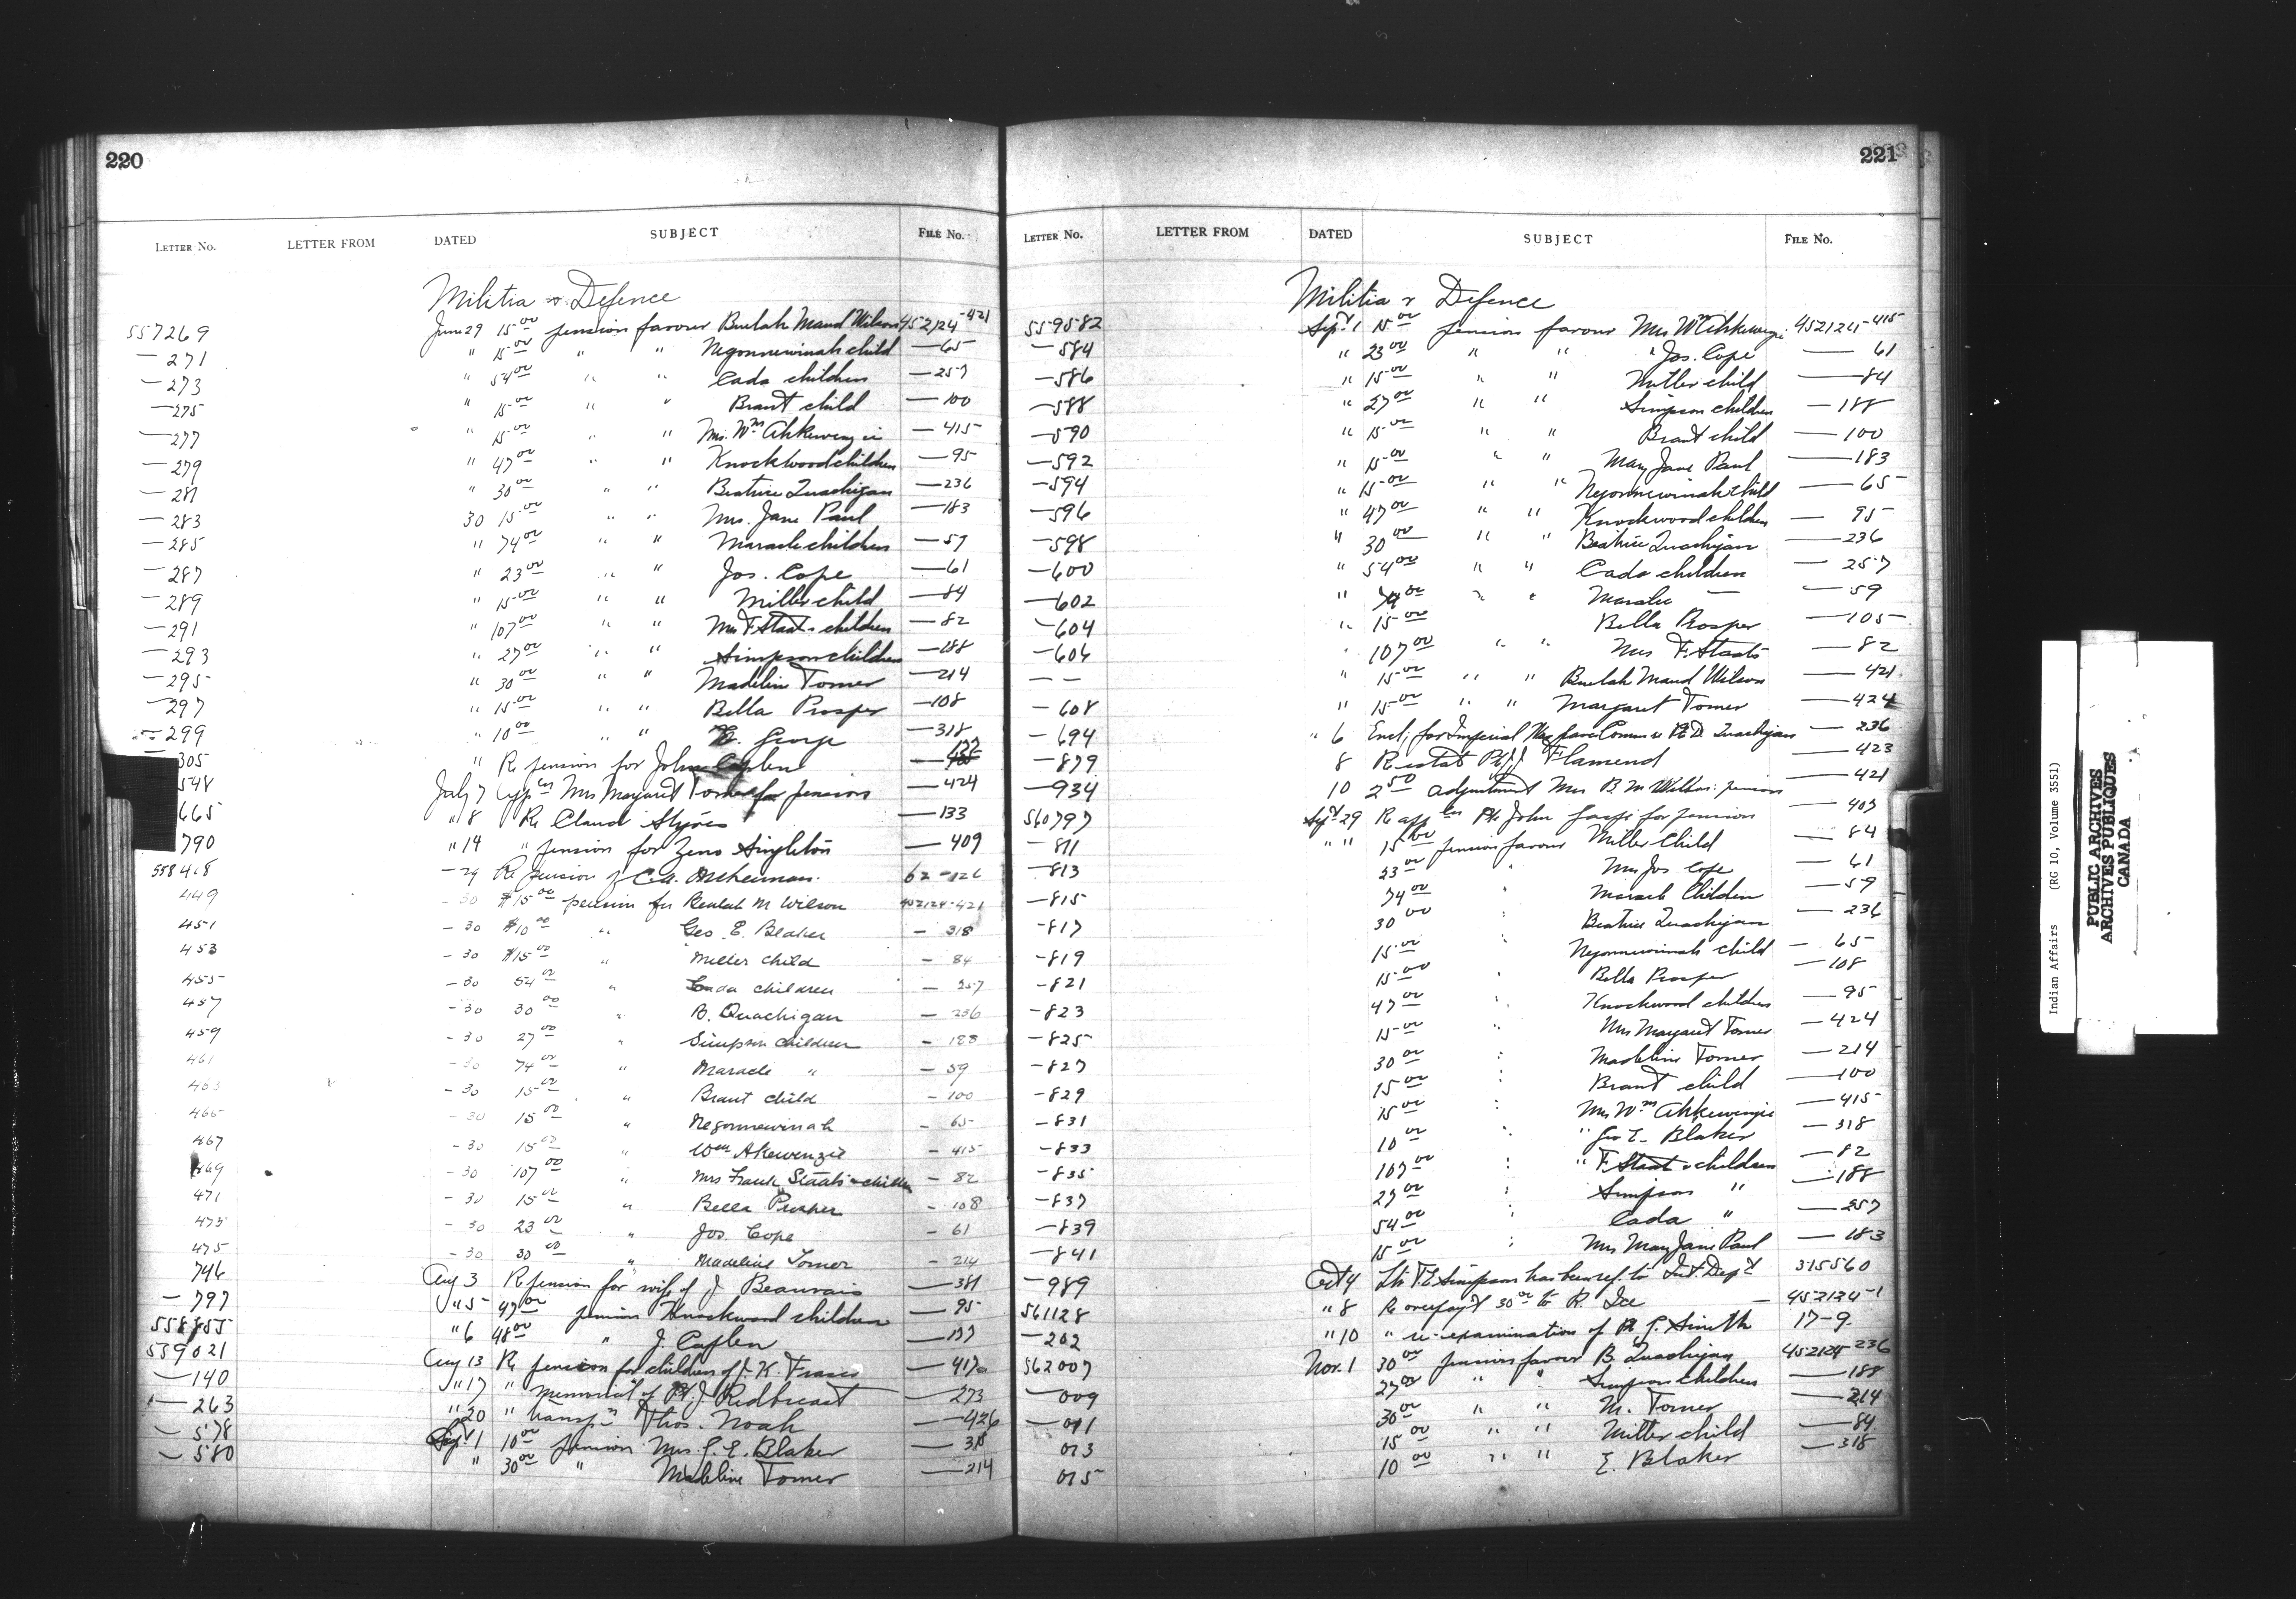 220
LETTER NO. LETTER FROM DATED SUBJECT FILE NO.
Militia & Defence
557269 June 29 15 00 pension favour Beulah Maud Wilson 452124-421
— 271 " 15 00 " " Negonnewinah child — 65
— 273 " 54 00 " " Cada children — 257
— 275 " 15 00 " " Brant child — 100
— 277 " 15 00 " " Mrs. Wm Ahkewenzie — 415
— 279 " 47 00 " " Knockwood children — 95
— 281 " 30 00 " " Beatrice Quachigan — 236
— 283 30 15 00 " " Mrs. Jane Paul — 183
— 285 " 74 00 " " Maracle children — 59
— 287 " 23 00 " " Jos. Cope — 61
— 289 " 15 00 " " Miller child — 84
— 291 " 107 00 " " Mrs F Staats children — 82
— 293 " 27 00 " " Simpson children — 188
— 295 " 30 00 " " Madeline Tomer — 214
— 297 " 15 00 " " Bella Prosper — 108
— 299 " 10 00 " " George — 318
— 305 " Re pension for John Caplen
548 July 7 appln Mrs Margaret Tomer for pension — 424
665 " 8 Re Claud — 133
790 " 14 " pension for Zeno Singleton — 409
558418 — 29 Re pension of C.A. 62-126
449 - 30 $15 00 pension for Beulah M Wilson 452124-421
451 - 30 $10 00 " Geo. E. Blaker — 318
453 - 30 $15 00 " Miller child — 84
455 - 30 54 00 " Cada children — 257
457 - 30 30 00 " B. Quachigan — 236
459 - 30 27 00 " Simpson children — 188
461 - 30 74 00 " Maracle " — 59
463 - 30 15 00 " Brant child — 100
465 - 30 15 00 " Negonnewinah — 65
467 - 30 15 00 " Wm Akewenzie — 415
469 - 30 107 00 " Mrs Frank Staats & children — 82
471 - 30 15 00 " Bella Prosper — 108
473 - 30 23 00 " Jos. Cope — 61
475 - 30 30 00 " Madeline Tomer — 214
746 Aug 3 Re pension for wife of J Beauvais — 381
— 797 " 5 47 00 pension Knockwood children — 95
558855 " 6 48 00 " J. Caplen — 137
559021 Aug 13 Re pension for children of J. K. Fraser — 417
— 140 " 17 " Memorial of Pt. J. Redbreast — 273
— 263 " 20 " transfr Thos. Noah — 426
— 578 Sept. 1 10 00 pension Mrs. G. E. Blaker — 318
— 580 " 30 00 " Madeline Tomer — 214
221
LETTER NO. LETTER FROM DATED SUBJECT FILE NO.
Militia & Defence
559582 Sept 1 15 00 pension favour Mrs Wm Ahkewenzie 452124-415
— 584 " 23 00 " " " Jos. Cope — 61
— 586 " 15 00 " " Miller child — 84
— 588 " 27 00 " " Simpson children — 188
— 590 " 15 00 " " Brant child — 100
— 592 " 15 00 " " Mary Jane Paul — 183
— 594 " 15 00 " " Negonnewinah child — 65
— 596 " 47 00 " " Knockwood children — 95
— 598 " 30 00 " " Beatrice Quachigan — 236
— 600 " 54 00 " " Cada children — 257
— 602 " 74 00 " " Maracle — — 59
— 604 " 15 00 Bella Prosper — 105
— 606 " 107 00 " " Mrs F. Staats — 82
— — " 15 00 " " Beulah Maud Wilson — 421
— 608 " 15 00 " " Margaret Tomer — 424
— 694 " 6 Encl; for Imperial War Graves Comm re Pt D Quachigan — 236
— 879 8 Re estate Pt J. Flamend — 423
— 934 10 2 50 adjustment Mrs B. M Wilson pension — 421
560797 Sept 29 Re appln Pte John for pension — 407
— 811 " " 15 00 pension favour Miller Child — 84
— 813 23 00 " Mrs Jos Cope — 61
— 815 74 00 " Maracle Children — 59
— 817 30 00 " Beatrice Quachigan — 236
— 819 15 00 " Negonnewinah child — 65
— 821 15 00 " Bella Prosper — 108
— 823 47 00 " Knockwood children — 95
— 825 15 00 " Mrs Margaret Tomer — 424
— 827 30 00 " Madeline Tomer — 214
— 829 15 00 " Brant child — 100
— 831 15 00 " Mrs Wm Ahkewenzie — 415
— 833 10 00 " " Geo E. Blaker — 318
— 835 107 00 " " F. Staats & children — 82
— 837 27 00 " Simpson " — 188
— 839 54 00 " Cada " — 257
— 841 15 00 " Mrs Mary Jane Paul — 183
— 989 Oct 4 Ltr T. E Simpson has been ref. to Int. Dept 315560
561128 " 8 Re overpayt 30 00 to R. Ice — 452124-1
— 202 " 10 " re-examination of Pt G. Smith 17-9
562007 Nov. 1 30 00 pension favour B. Quachigan 452124-236
— 009 27 00 " " Simpson children — 188
— 011 30 00 " " M. Tomer — 214
013 15 00 " " Miller child — 84
015 10 00 " " E. Blaker — 318
Indian Affairs (RG 10, Volume 3551)
PUBLIC ARCHIVES
ARCHIVES PUBLIQUES
CANADA